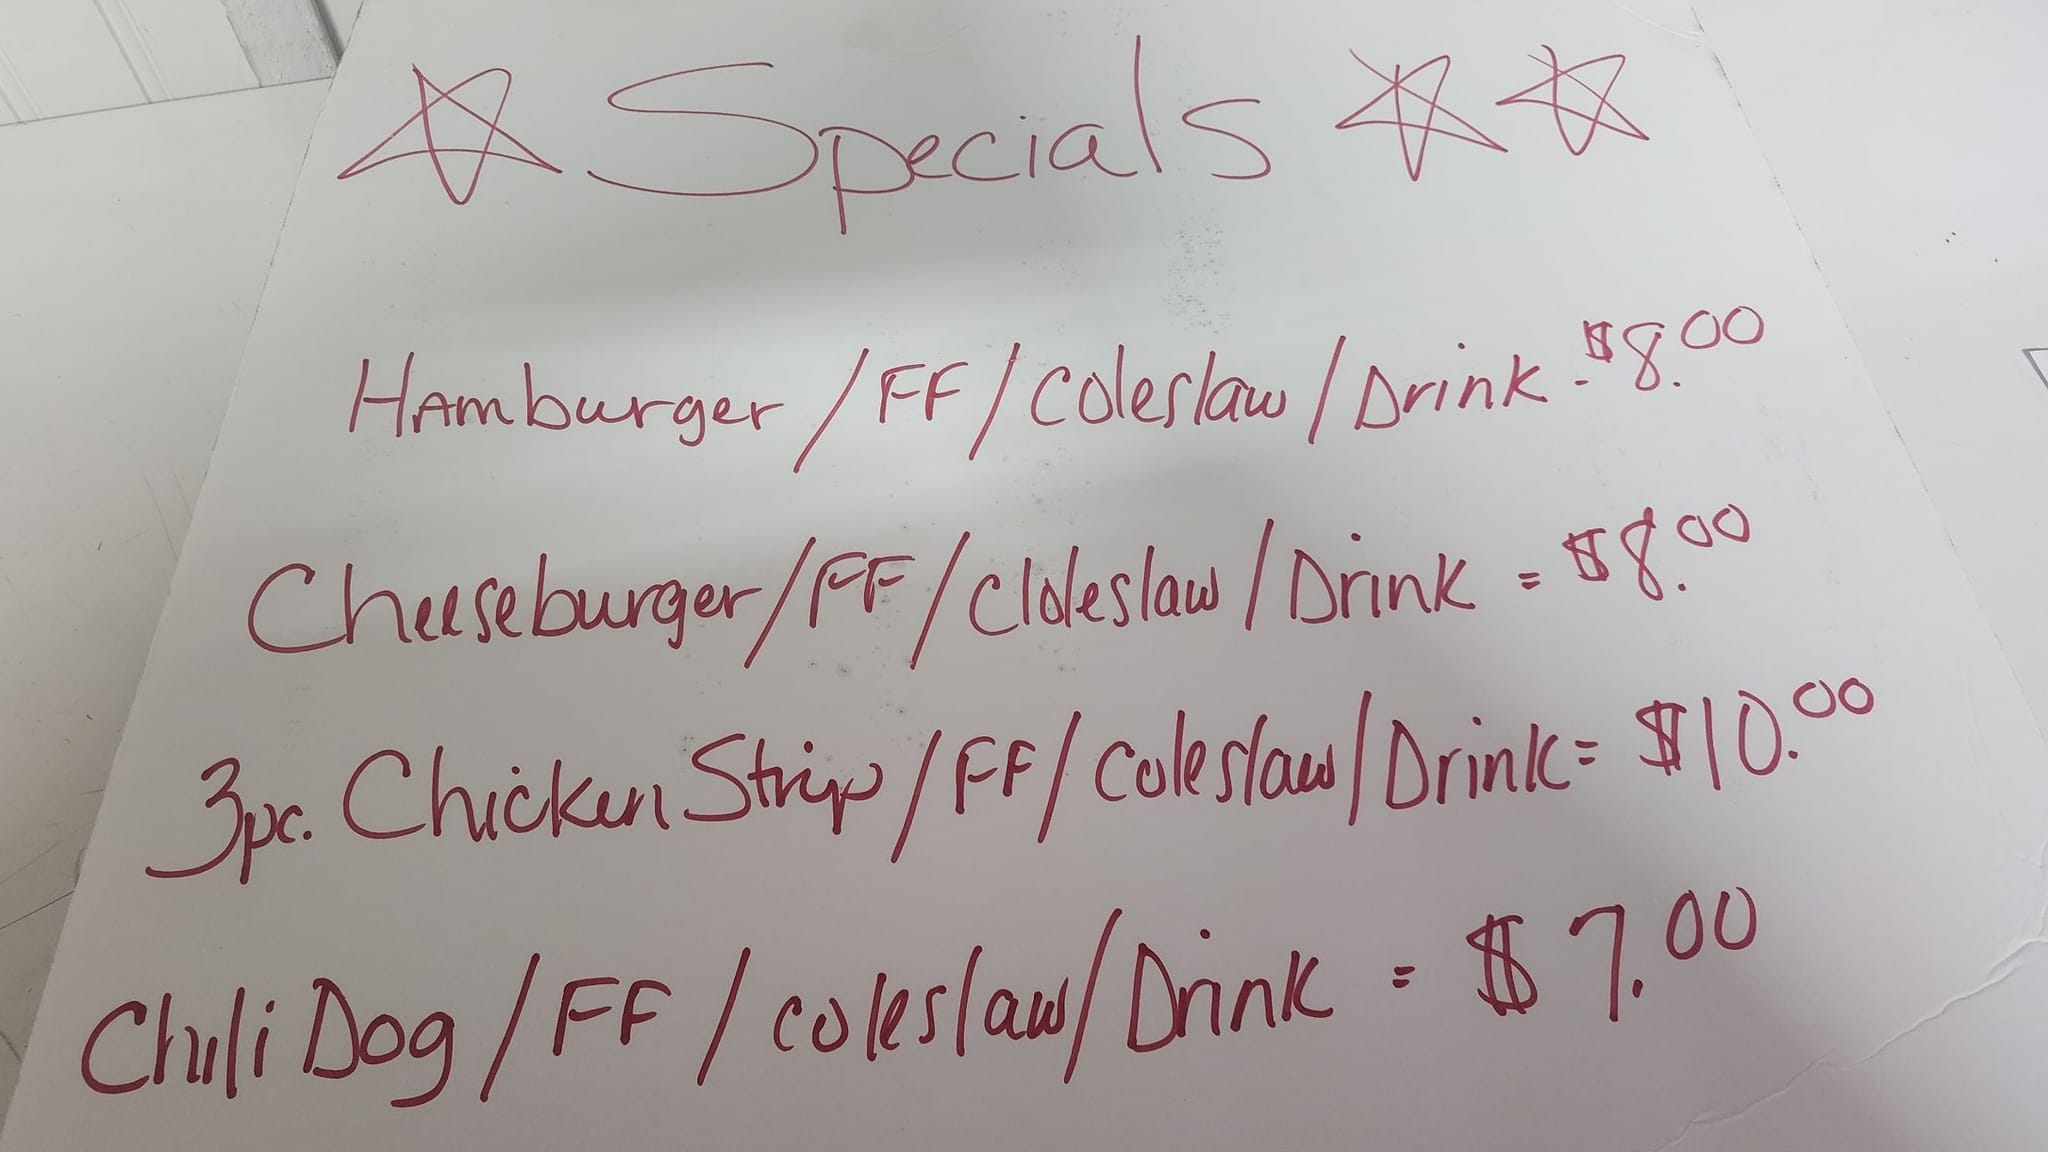 Specials
Hamburger / FF / Coleslaw / Drink - $8.00
Cheeseburger / FF / Cloleslaw / Drink = $8.00
3pc. Chicken Strip / FF / Coleslaw / Drink = $10.00
Chili Dog / FF / coleslaw / Drink = $7.00